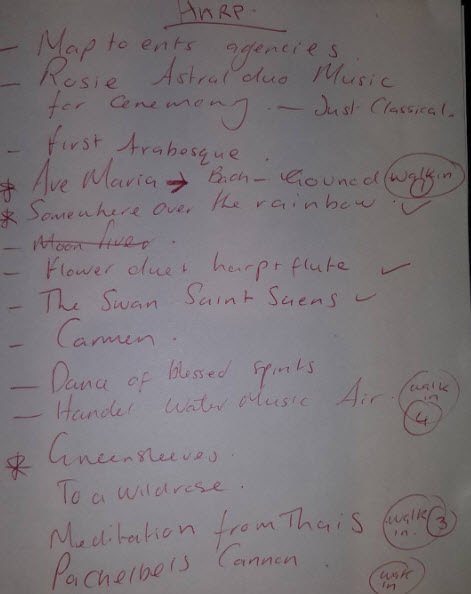 HARP.
- Map to ents agencies.
- Rosie Astral duo Music
for ceremony. - Just Classical.
- first Arabesque.
* Ave Maria → Bach - Gounod walk in
* Somewhere over the rainbow. ✓
- Moon River.
- Flower duet harp+flute ✓
- The Swan Saint Saens ✓
- Carmen.
- Dance of blessed spirits
- Handel Water Music Air. walk in 4
* Greensleeves.
To a wildrose.
Meditation from Thais walk in. 3
Pachelbels Cannon. walk in